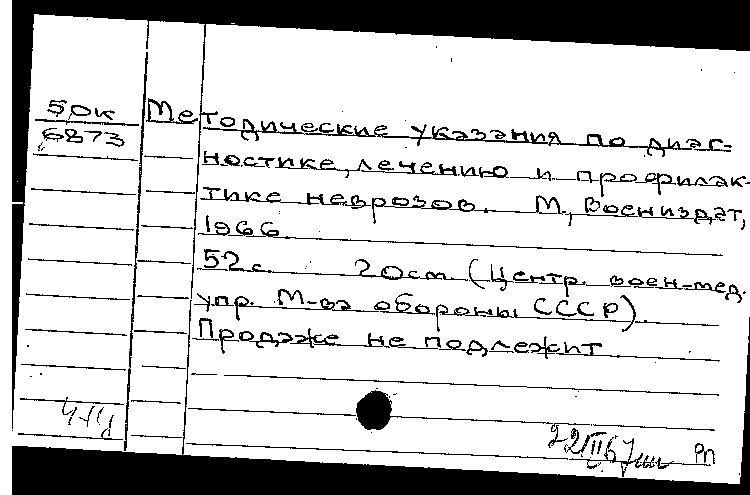 50к Методические указания по диаг-
6873
ностике, лечению и профилак-
тике неврозов. М., Воениздат,
1966.
52 с. 20 см. (Центр. воен-мед.
упр. М-ва обороны СССР).
Продаже не подлежит
22/III 67 РП